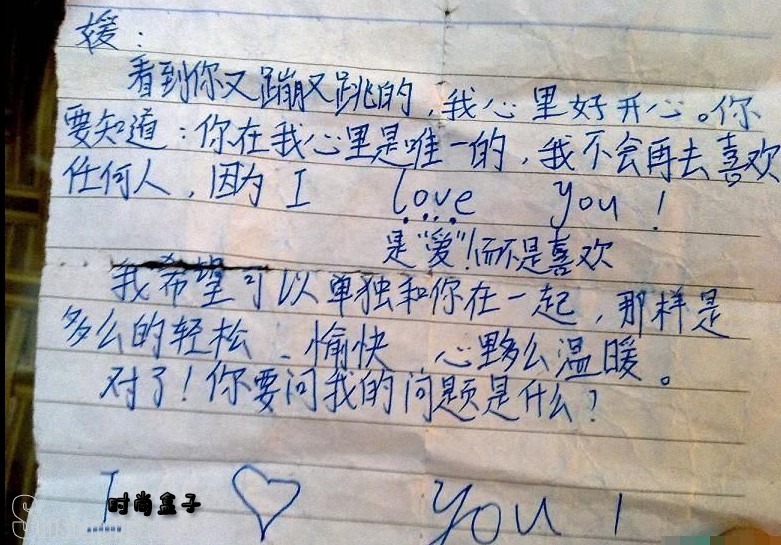 媛：
看到你又蹦又跳的，我心里好开心。你
要知道：你在我心里是唯一的，我不会再去喜欢
任何人，因为 I love you！
是“爱”！而不是喜欢
我希望可以单独和你在一起，那样是
多么的轻松、愉快，心里多么温暖。
对了！你要问我的问题是什么？
I ♡ you！
时尚盒子